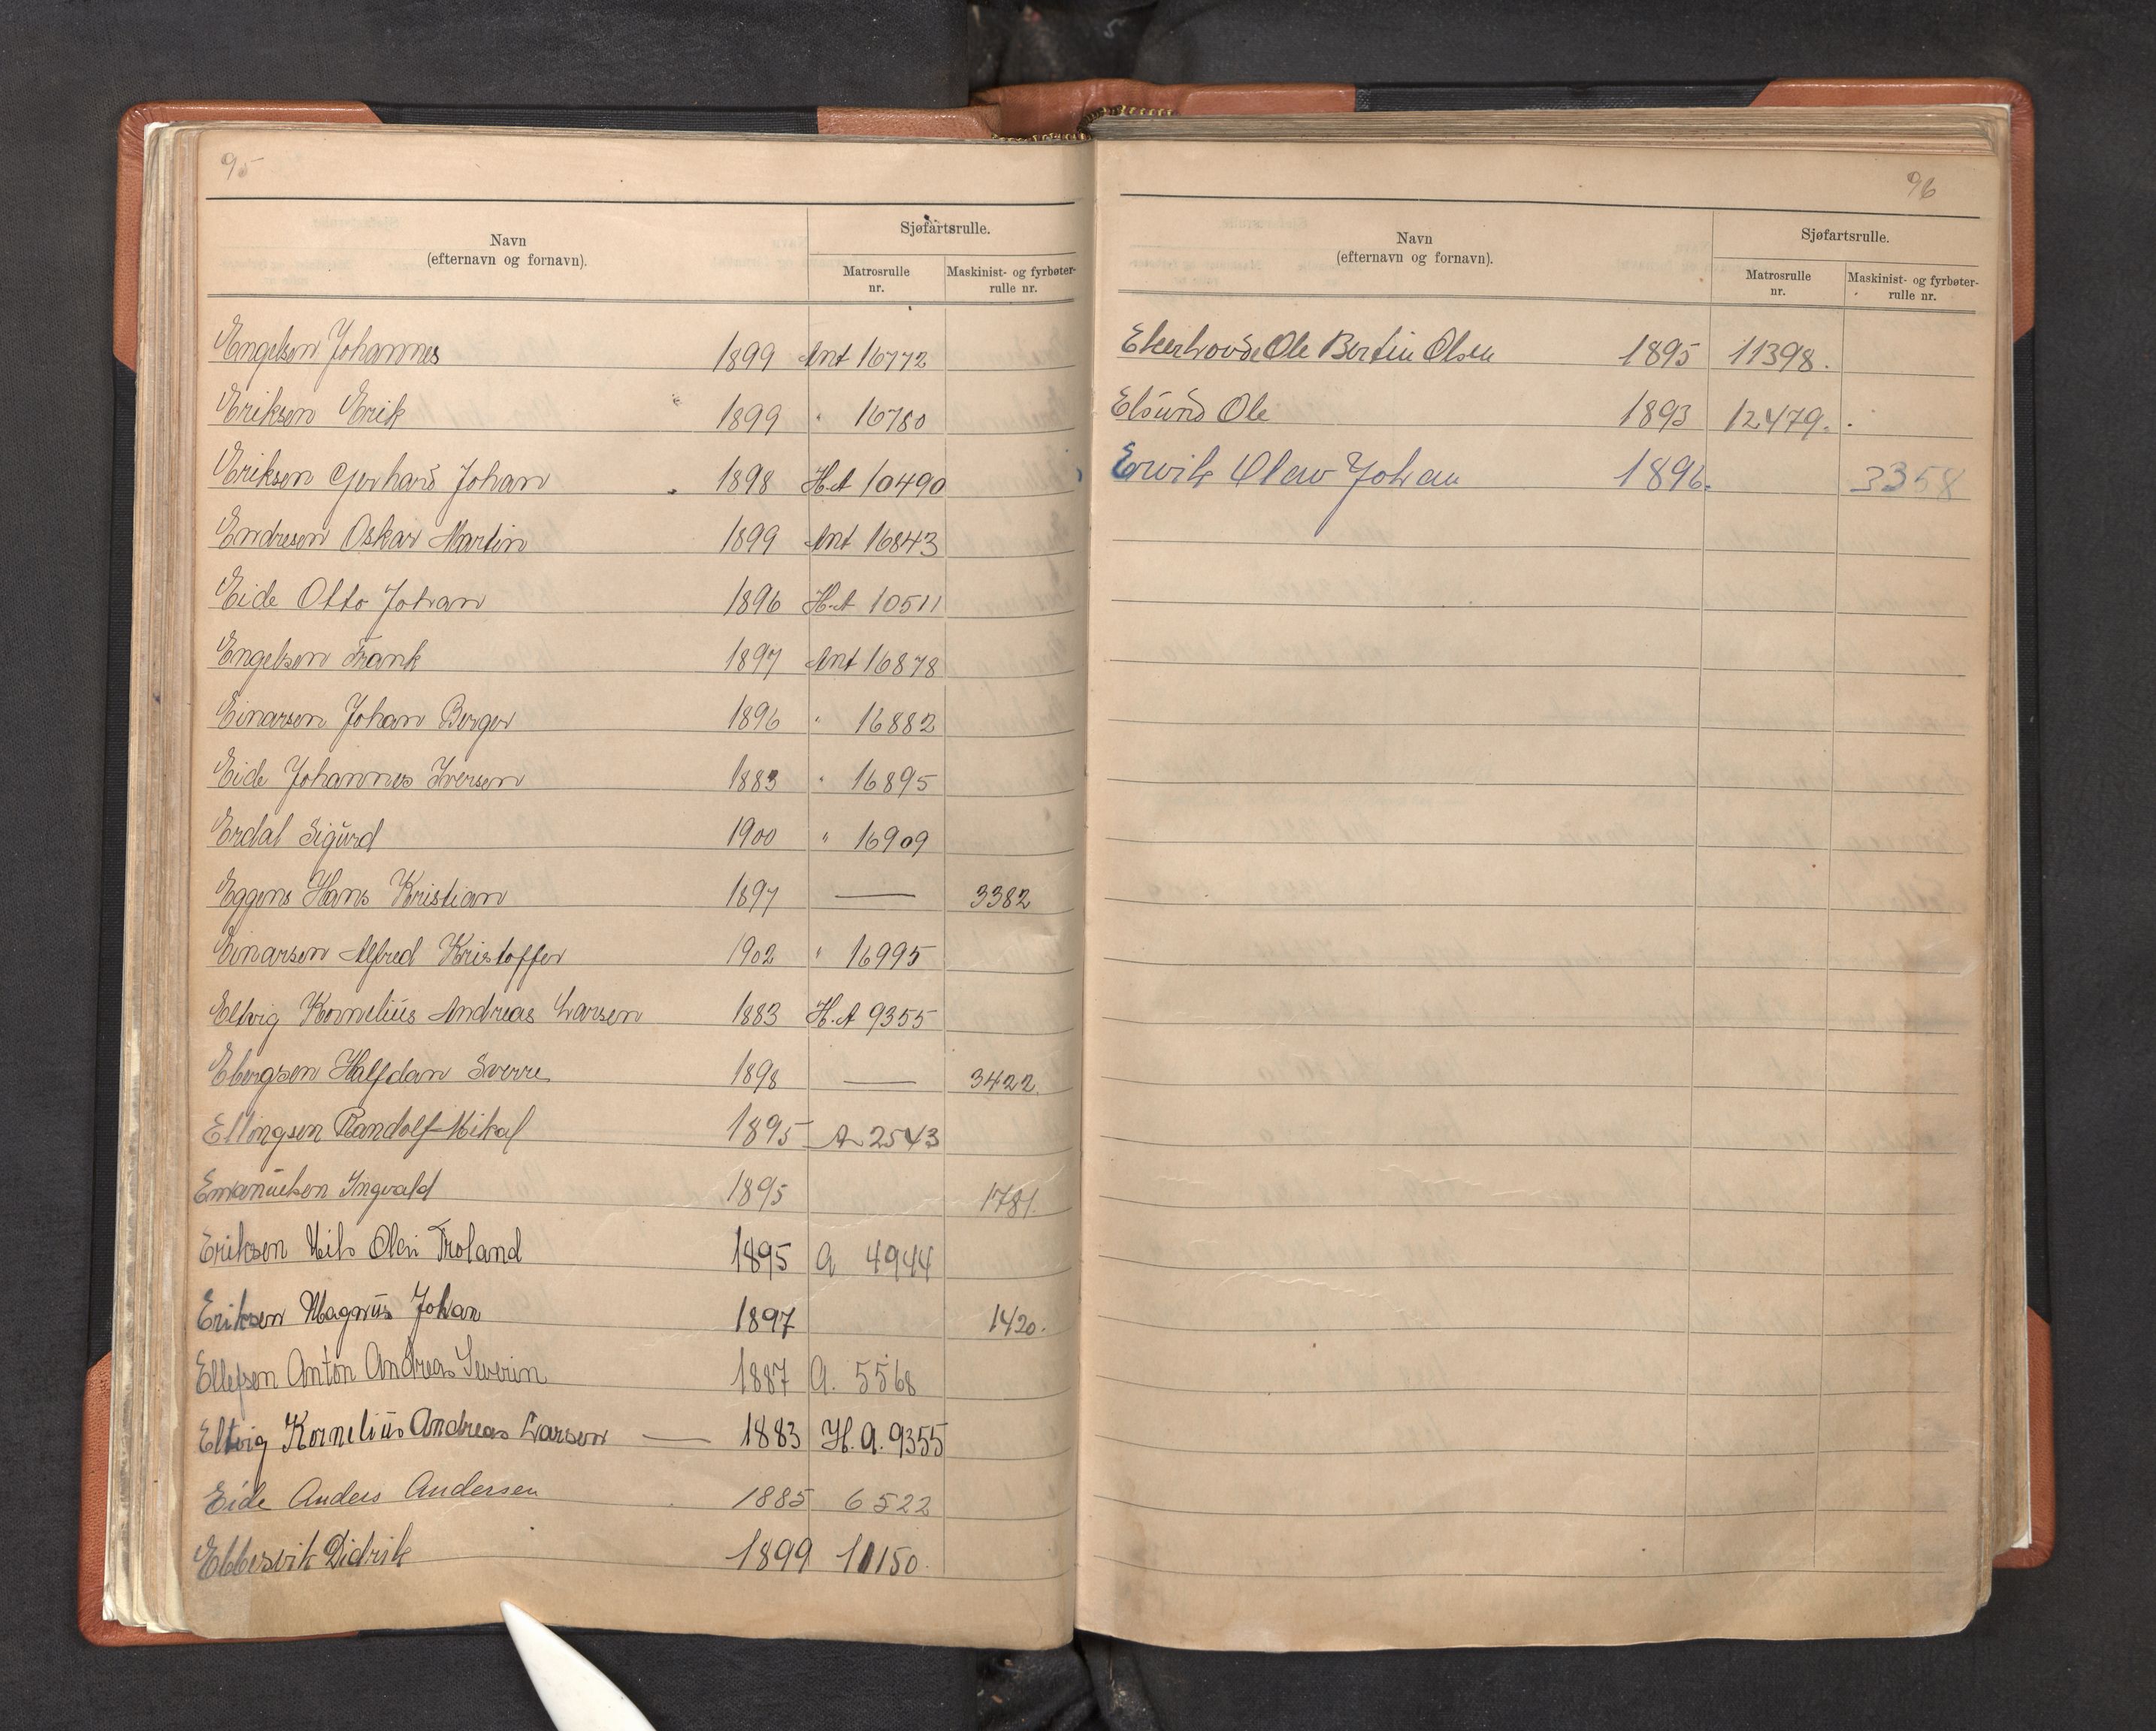 95
Navn
(efternavn og fornavn).
Sjøfartsrulle.
Matrosrulle
nr.
Maskinist- og fyrbøter-
rulle nr.
Engelsen Johannes 1899 Ant 16772
Eriksen Erik 1899 " 16780
Eriksen Gerhard Johan 1898 H.A 10490
Endresen Oskar Martin 1899 Ant 16843
Eide Otto Johan 1896 H.A 10511
Engelsen Frank 1897 Ant 16878
Einarsen Johan Berger 1896 " 16882
Eide Johannes Iversen 1883 " 16895
Erdal Sigurd 1900 " 16909
Eggens Hans Kristian 1897 — 3382
Einarsen Alfred Kristoffer 1902 " 16995
Eltvig Kornelius Andreas Larsen 1883 H.A 9355
Ebergsen Halfdan Sverre 1898 — 3422.
Ellingsen Randolf Mikal 1895 A 2543
Emanuelsen Ingvald 1895 1781.
Eriksen Nils Olai Troland 1895 A 4944
Eriksen Magnus Johan 1897 1420.
Ellefsen Anton Andreas Severin 1887 A. 5568
Eltvig Kornelius Andreas Larsen — 1883 H.A. 9355
Eide Anders Andersen 1885 6522
Ebbesvik Didrik 1899 10150.
96
Navn
(efternavn og fornavn).
Sjøfartsrulle.
Matrosrulle
nr.
Maskinist- og fyrbøter-
rulle nr.
Ole Bertin Olsen 1895 11398.
Elsund Ole 1893 12479.
Ervik Olav Johan 1896. 3358